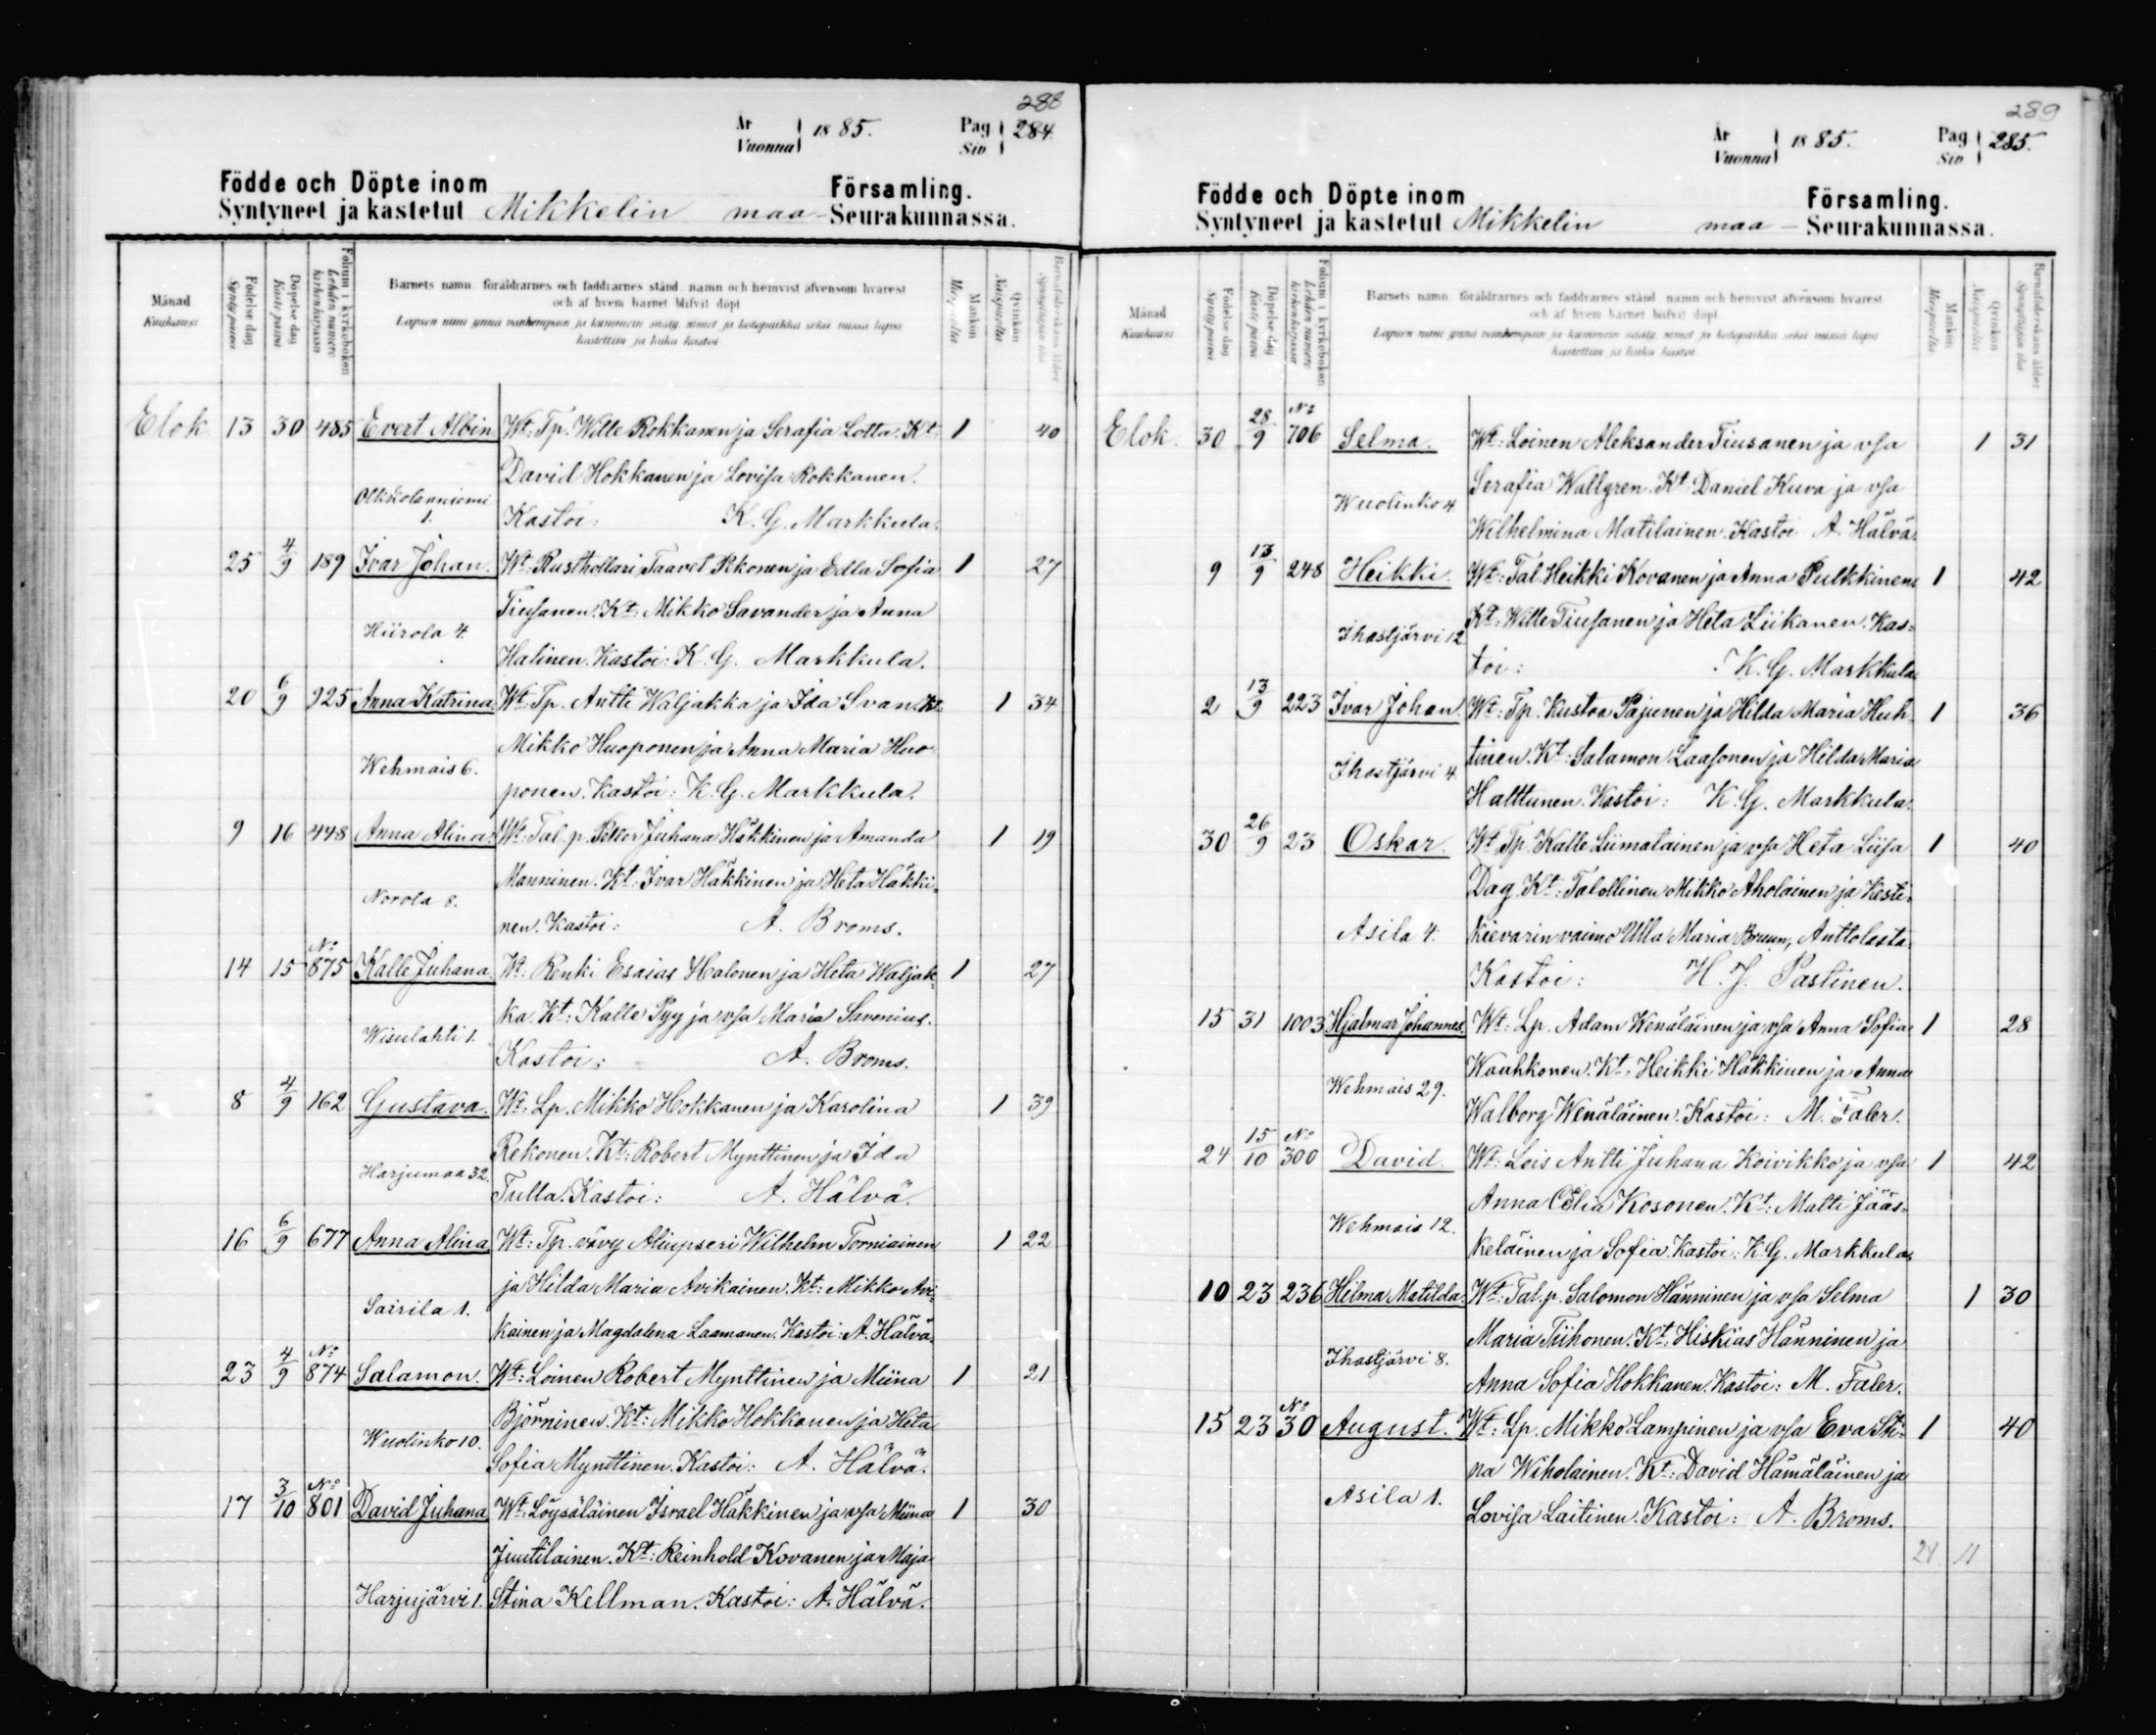 288
År Vuonna 1885. Pag Siv 284.
Födde och Döpte inom Församling.
Syntyneet ja kastetut Mikkelin maa - Seurakunnassa.
Månad Kuukausi
Födelse dag Synty päivä
Döpelse dag Kaste päivä
Folium i kyrkoboken Lehden numero kirkonkirjassa
Barnets namn, föräldrarnes och faddrarnes stånd, namn och hemvist äfvensom hvarest
och af hvem barnet blifvit döpt
Lapsen nimi ynnä vanhempain ja kummein sääty, nimet ja kotopaikka sekä missä lapsi
kastettiin ja kuka kastoi
Mankön Miespuolta
Qvinkön Naispuolta
Barnaföderskans ålder Synnyttäjän ikä
Elok. 13 30 485 Evert Albin Wt: Tp. Wille Rokkanen ja Serafia Lotta. Kt: 1 40
David Hokkanen ja Lovisa Rokkanen.
Olkkolanniemi 1. Kastoi: K. G. Markkula.
25 4/9 189 Ivar Johan. Wt: Rusthollari Taavet Pekonen ja Edla Sofia 1 27
Tiusanen. Kt: Mikko Savander ja Anna
Hiirola 4. Halinen. Kastoi: K. G. Markkula.
20 6/9 925 Anna Katrina Wt: Tp. Antti Waljakka ja Ida Svan. Kt: 1 34
Mikko Huoponen ja Anna Maria Huo-
Wehmais 6. ponen. Kastoi: K. G. Markkula.
9 16 448 Anna Alina. Wt: Tal. p. Petter Juhana Häkkinen ja Amanda 1 19
Manninen. Kt: Ivar Häkkinen ja Heta Häkki-
Norola 8. nen. Kastoi: A. Broms.
14 15 No 875 Kalle Juhana. Wt: Renki Esaias Halonen ja Heta Waljak- 1 27
ka. Kt: Kalle Pyy ja vsa Maria Savenius.
Wisulahti 1. Kastoi: A. Broms.
8 4/9 162 Gustava. Wt: Lp. Mikko Hokkanen ja Karolina 1 39
Rekonen. Kt: Robert Mynttinen ja Ida
Harjumaa 32. Tulla. Kastoi: A. Hälvä.
16 6/9 677 Anna Alina Wt: Tp. vävy Aliupseri Wilhelm Torniainen 1 22
ja Hilda Maria Avikainen. Kt: Mikko Avi-
Sairila 1. kainen ja Magdalena Laamanen. Kastoi: A. Hälvä.
23 4/9 No 874 Salamon. Wt: Loinen Robert Mynttinen ja Miina 1 21
Björninen. Kt: Mikko Hokkanen ja Heta
Wuolinko 10. Sofia Mynttinen. Kastoi: A. Hälvä.
17 3/10 No 801 David Juhana Wt: Löysäläinen Israel Häkkinen ja vsa Miina 1 30
Juutilainen. Kt: Reinhold Kovanen ja Maja
Harjujärvi 1. Stina Kellman. Kastoi: A. Hälvä.
289
År Vuonna 1885. Pag Siv 285.
Födde och Döpte inom Församling.
Syntyneet ja kastetut Mikkelin maa - Seurakunnassa.
Månad Kuukausi
Födelse dag Synty päivä
Döpelse dag Kaste päivä
Folium i kyrkoboken Lehden numero kirkonkirjassa
Barnets namn, föräldrarnes och faddrarnes stånd, namn och hemvist äfvensom hvarest
och af hvem barnet blifvit döpt
Lapsen nimi ynnä vanhempain ja kummein sääty, nimet ja kotopaikka sekä missä lapsi
kastettiin ja kuka kastoi
Mankön Miespuolta
Qvinkön Naispuolta
Barnaföderskans ålder Synnyttäjän ikä
Elok. 30 28/9 No 706 Selma. Wt: Loinen Aleksander Tiusanen ja vsa 1 31
Serafia Wallgren. Kt: Daniel Kuva ja vsa
Wuolinko 4 Wilhelmina Matilainen. Kastoi A. Hälvä.
9 13/9 248 Heikki. Wt: Tal. Heikki Kovanen ja Anna Pulkkinen. 1 42
Kt: Wille Tiusanen ja Heta Liikanen. Kas-
Ihastjärvi 12 toi: K. G. Markkula
2 13/9 223 Ivar Johan. Wt: Tp. Kustaa Pajunen ja Hilda Maria Huh- 1 36
tinen. Kt: Salamon Laasonen ja Hilda Maria
Ihastjärvi 4. Halttunen. Kastoi: K. G. Markkula.
30 26/9 23 Oskar. Wt: Tp. Kalle Liimatainen ja vsa Heta Liisa 1 40
Dag. Kt: Talollinen Mikko Aholainen ja Kesti-
Asila 4. kievarin vaimo Ulla Maria Bruun, Anttolasta.
Kastoi: H. J. Pastinen.
15 31 1003 Hjalmar Johannes. Wt: Lp. Adam Wenäläinen ja vsa Anna Sofia 1 28
Wauhkonen. Kt: Heikki Häkkinen ja Anna
Wehmais 29. Walborg Wenäläinen. Kastoi: M. Faler.
24 15/10 No 300 David. Wt: Lois Antti Juhana Koivikko ja vsa 1 42
Anna Celia Kosonen. Kt: Matti Jääs-
Wehmais 12. keläinen ja Sofia. Kastoi: K. G. Markkula.
10 23 236 Hilma Matilda. Wt: Tal. p. Salomon Hänninen ja vsa Selma 1 30
Maria Tiihonen. Kt: Hiskias Hänninen ja
Ihastjärvi 8. Anna Sofia Hokkanen. Kastoi: M. Faler.
15 23 No 30 August. Wt: Lp. Mikko Lampinen ja vsa Eva Sti- 1 40
na Wiholainen. Kt: David Hämäläinen ja
Asila 1. Lovisa Laitinen. Kastoi: A. Broms.
21 11